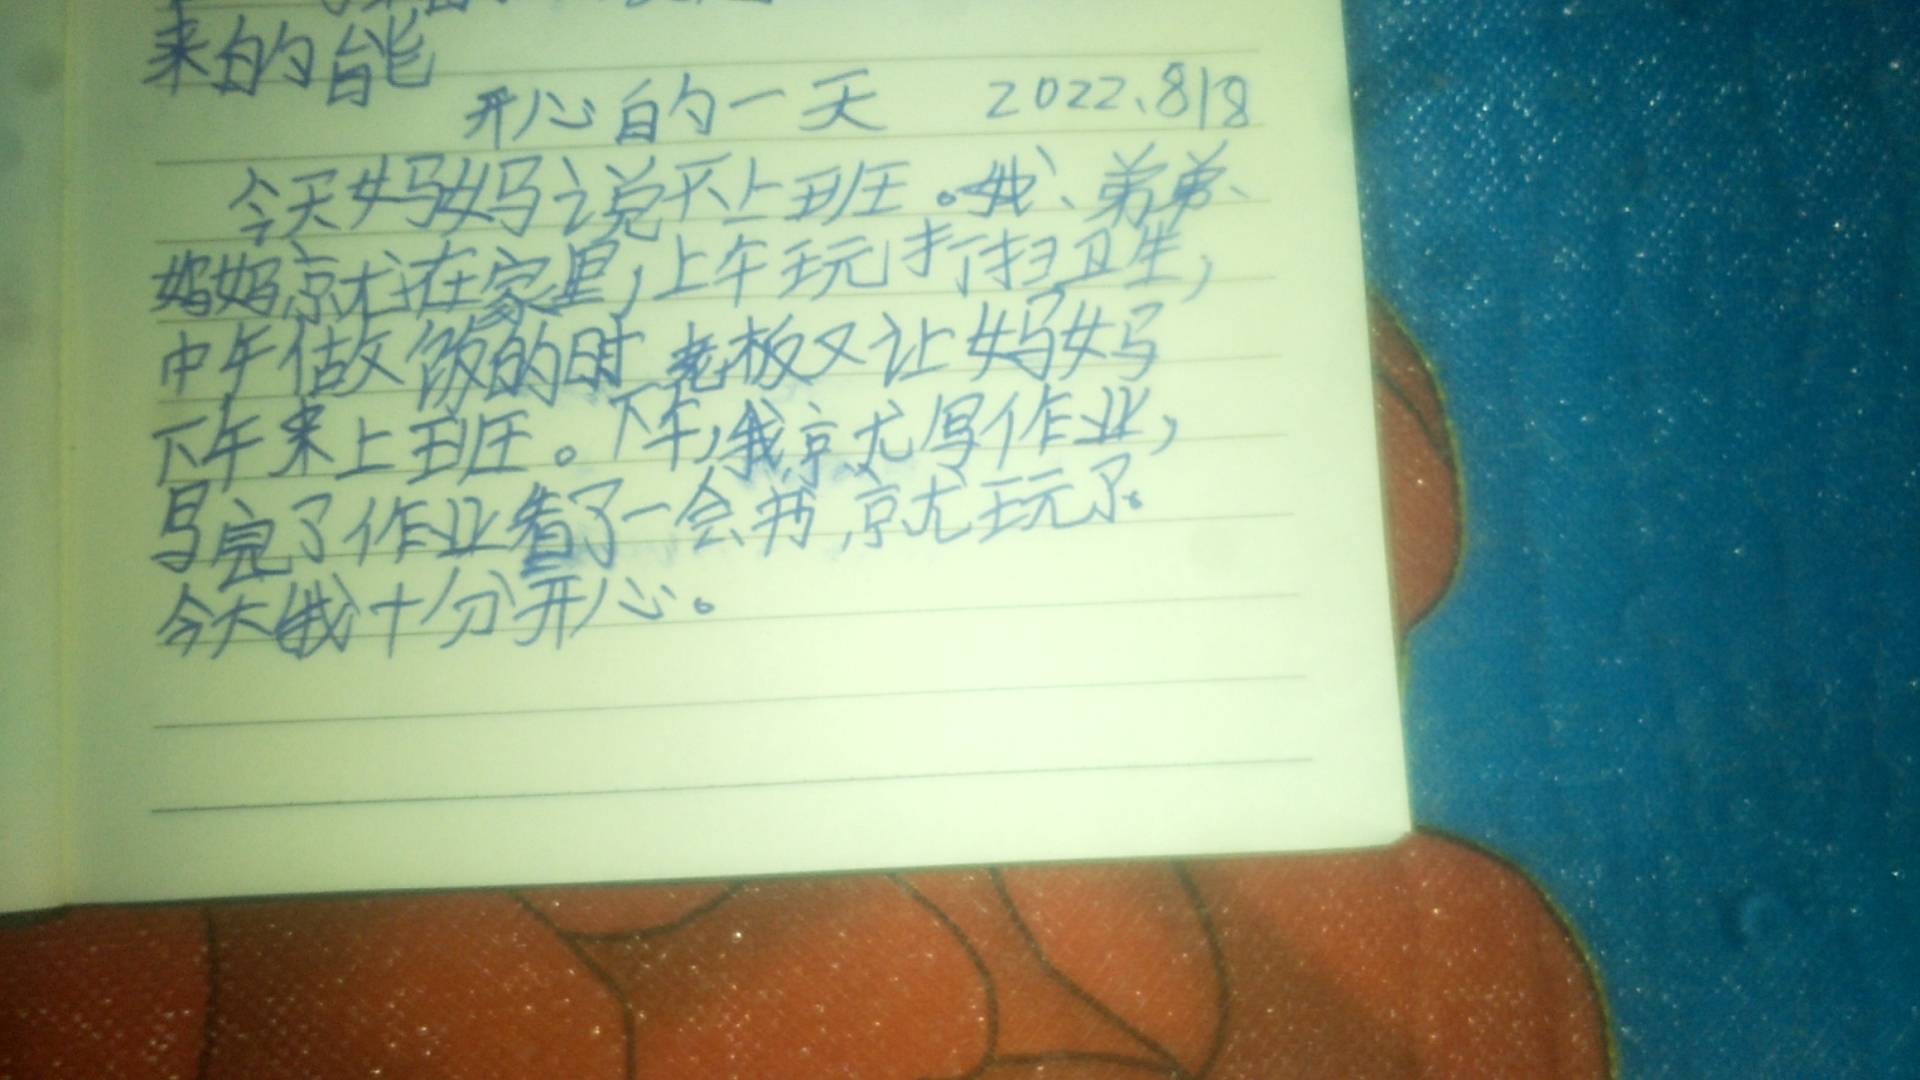 来的能
开心的一天 2022、8/8
今天妈妈说不上班。我、弟弟、
妈妈就在家里，上午玩打扫卫生，
中午做饭的时 老板又让妈妈
下午来上班。下午，我就写作业，
写完了作业看了一会书，就玩了。
今天我十分开心。